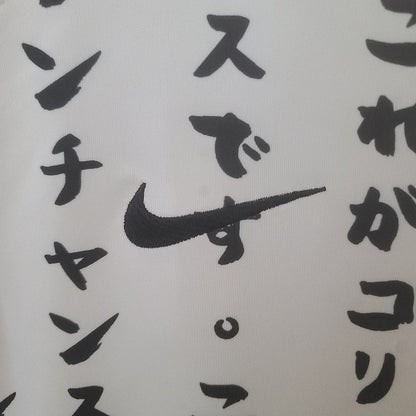 これがコリ
スです。こ
ンチャンス